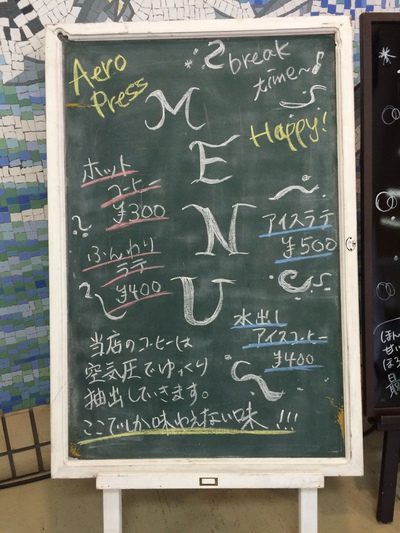 Aero
Press
break
time~
Happy!
MENU
ホット
コーヒー
¥300
ふんわり
ラテ
¥400
アイスラテ
¥500
水出し
アイスコーヒー
¥400
当店のコーヒーは
空気圧でゆっくり
抽出していきます。
ここでしか味わえない味!!!